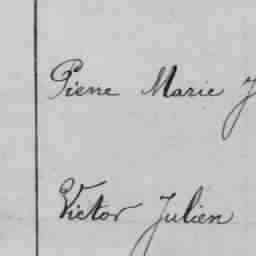 Pierre Marie J
Victor Julien